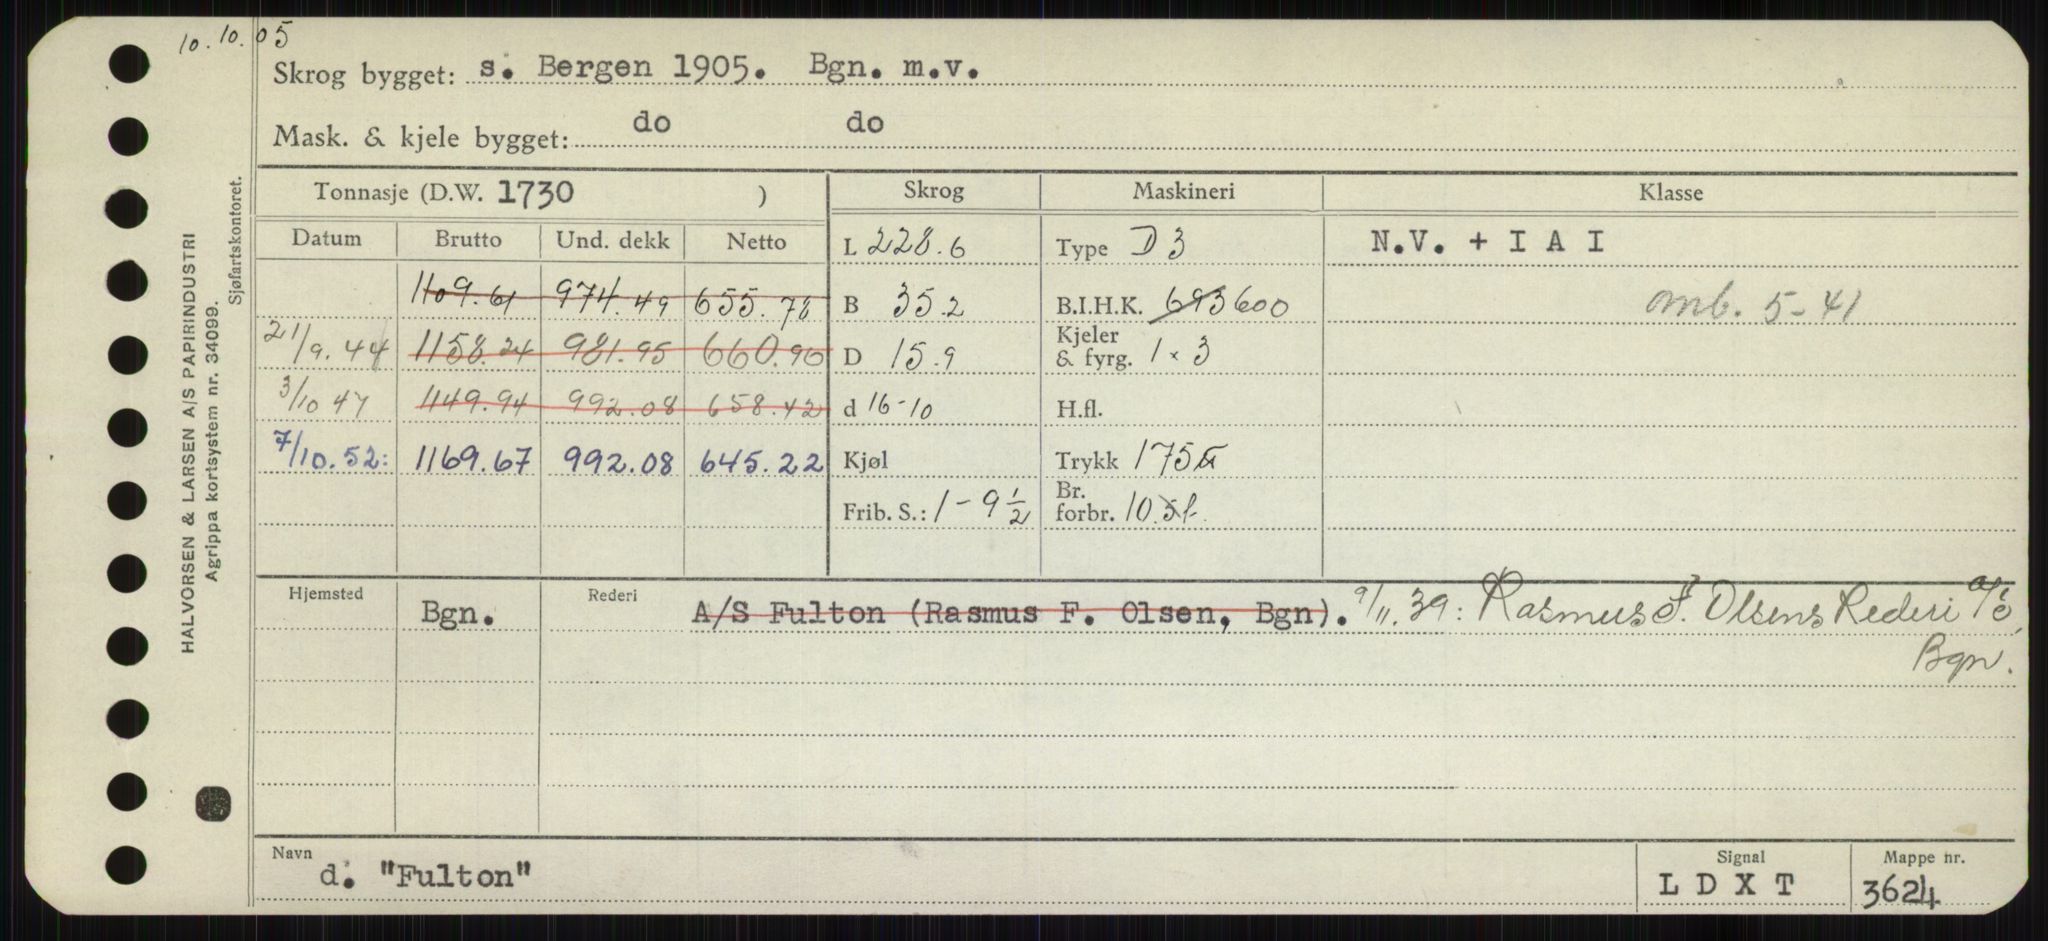 10.10.05
Skrog bygget: s. Bergen 1905. Bgn. m.v.
Mask. & kjele bygget: do do
HALVORSEN & LARSEN A/S PAPIRINDUSTRI
Agrippa kortsystem nr. 34099.
Sjøfartskontoret.
Tonnasje (D.W. 1730 ) Skrog Maskineri Klasse
Datum Brutto Und. dekk Netto L 228.6 Type D 3 N.V. + I A I
1109.61 974.49 655.78 B 35.2 B.I.H.K. 693 600 omb. 5-41
21/9.44 1158.24 981.95 660.96 D 15.9 Kjeler & fyrg. 1 x 3
3/10 47 1149.94 992.08 658.42 d 16-10 H.fl.
7/10.52: 1169.67 992.08 645.22 Kjøl Trykk 175
Frib. S.: 1 - 9 1/2 Br. forbr. 10.5
Hjemsted Bgn. Rederi A/S Fulton (Rasmus F. Olsen, Bgn). 9/11.39: Rasmus F. Olsens Rederi A/S,
Bgn.
Navn d. "Fulton" Signal L D X T Mappe nr. 3624